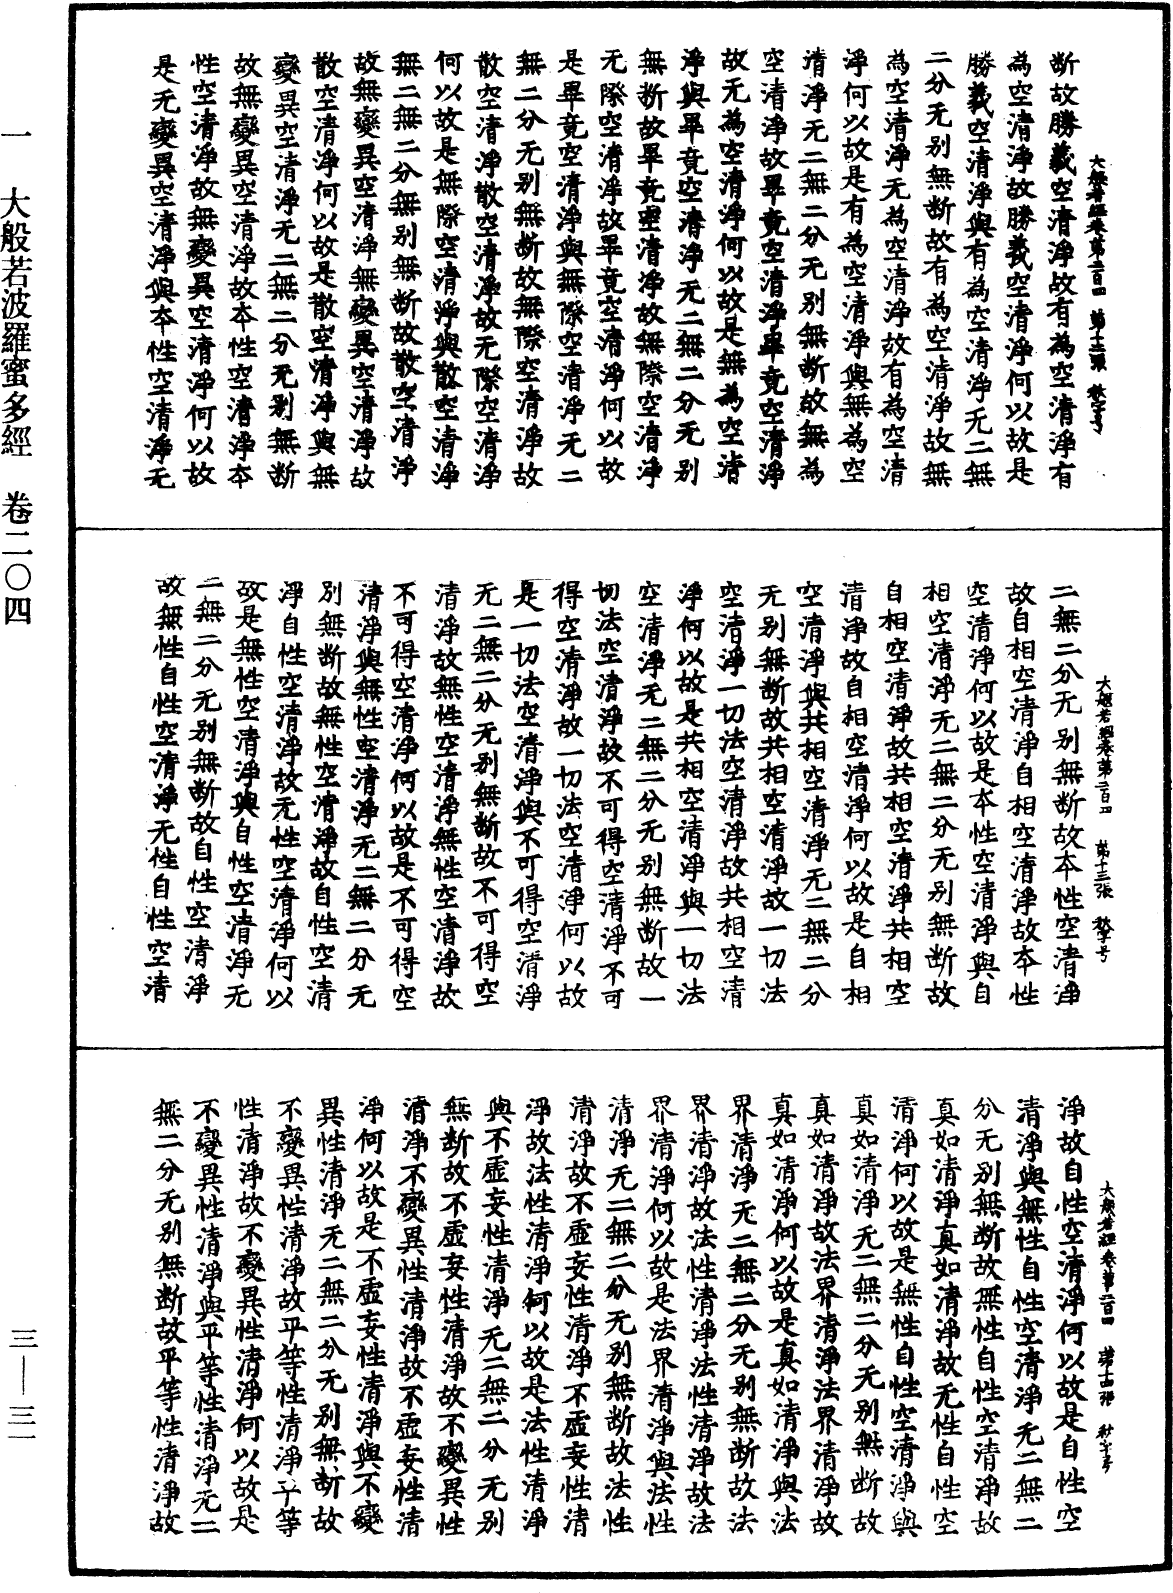 大般若經卷第二百四　第十二張　秋字号
断故勝義空清淨故有為空清淨有
為空清淨故勝義空清淨何以故是
勝義空清淨與有為空清淨无二無
二分无别無断故有為空清淨故無
為空清淨无為空清淨故有為空清
淨何以故是有為空清淨與無為空
清淨无二無二分无别無断故無為
空清淨故畢竟空清淨畢竟空清淨
故无為空清淨何以故是無為空清
淨與畢竟空清淨无二無二分无别
無断故畢竟空清淨故無際空清淨
无際空清淨故畢竟空清淨何以故
是畢竟空清淨與無際空清淨无二
無二分无别無断故無際空清淨故
散空清淨散空清淨故无際空清淨
何以故是無際空清淨與散空清淨
無二無二分無别無断故散空清淨
故無變異空清淨無變異空清淨故
散空清淨何以故是散空清淨與無
變異空清淨无二無二分无别無断
故無變異空清淨故本性空清淨本
性空清淨故無變異空清淨何以故
是无變異空清淨與本性空清淨无
大般若經卷第二百四　第十三張　秋字号
二無二分无别無断故本性空清淨
故自相空清淨自相空清淨故本性
空清淨何以故是本性空清淨與自
相空清淨无二無二分无别無断故
自相空清淨故共相空清淨共相空
清淨故自相空清淨何以故是自相
空清淨與共相空清淨无二無二分
无别無断故共相空清淨故一切法
空清淨一切法空清淨故共相空清
淨何以故是共相空清淨與一切法
空清淨无二無二分无别無断故一
切法空清淨故不可得空清淨不可
得空清淨故一切法空清淨何以故
是一切法空清淨與不可得空清淨
无二無二分无别無断故不可得空
清淨故無性空清淨無性空清淨故
不可得空清淨何以故是不可得空
清淨與無性空清淨无二無二分无
别無断故無性空清淨故自性空清
淨自性空清淨故无性空清淨何以
故是無性空清淨與自性空清淨无
二無二分无别無断故自性空清淨
故無性自性空清淨无性自性空清
大般若經卷第二百四　第十四張　秋字号
淨故自性空清淨何以故是自性空
清淨與無性自性空清淨无二無二
分无别無断故無性自性空清淨故
真如清淨真如清淨故无性自性空
清淨何以故是無性自性空清淨與
真如清淨无二無二分无别無断故
真如清淨故法界清淨法界清淨故
真如清淨何以故是真如清淨與法
界清淨无二無二分无别無断故法
界清淨故法性清淨法性清淨故法
界清淨何以故是法界清淨與法性
清淨无二無二分无别無断故法性
清淨故不虛妄性清淨不虛妄性清
淨故法性清淨何以故是法性清淨
與不虛妄性清淨无二無二分无别
無断故不虛妄性清淨故不變異性
清淨不變異性清淨故不虛妄性清
淨何以故是不虛妄性清淨與不變
異性清淨无二無二分无别無断故
不變異性清淨故平等性清淨平等
性清淨故不變異性清淨何以故是
不變異性清淨與平等性清淨无二
無二分无别無断故平等性清淨故
一　大般若波羅蜜多經　卷二〇四
三—三一